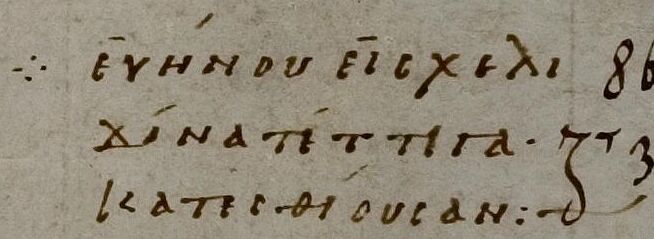 εὐήνου εἰς χελι
δόνα τέττιγα·
κατεσθίουσαν: